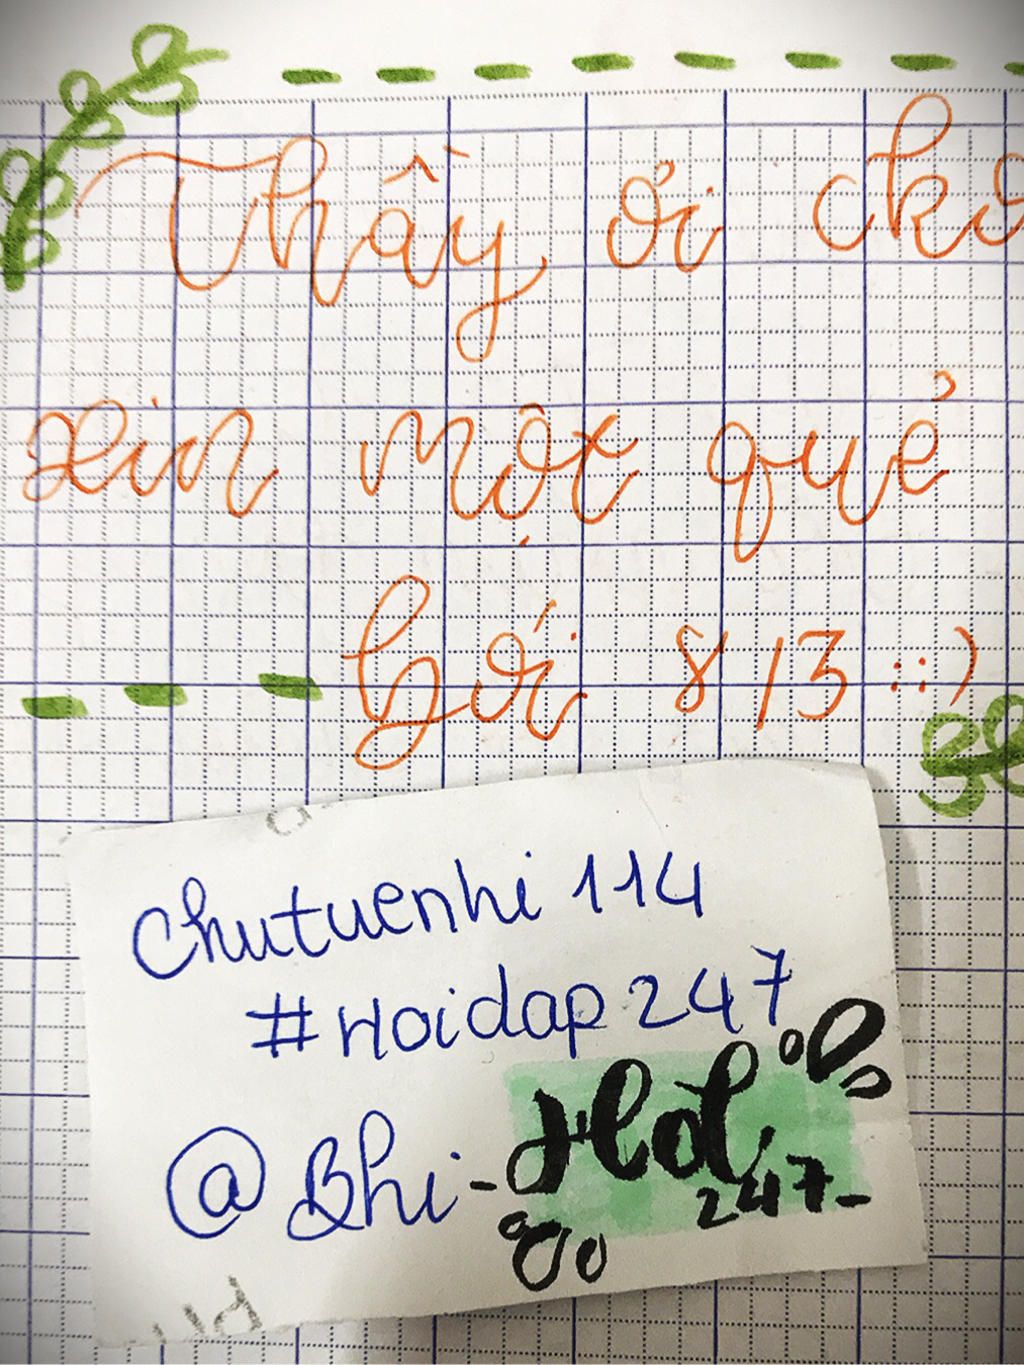 Thầy ơi cho
xin một quẻ
bói 8/3 ::)
Chutuenhi 114
#Hoidap247
@Bhi-
247-